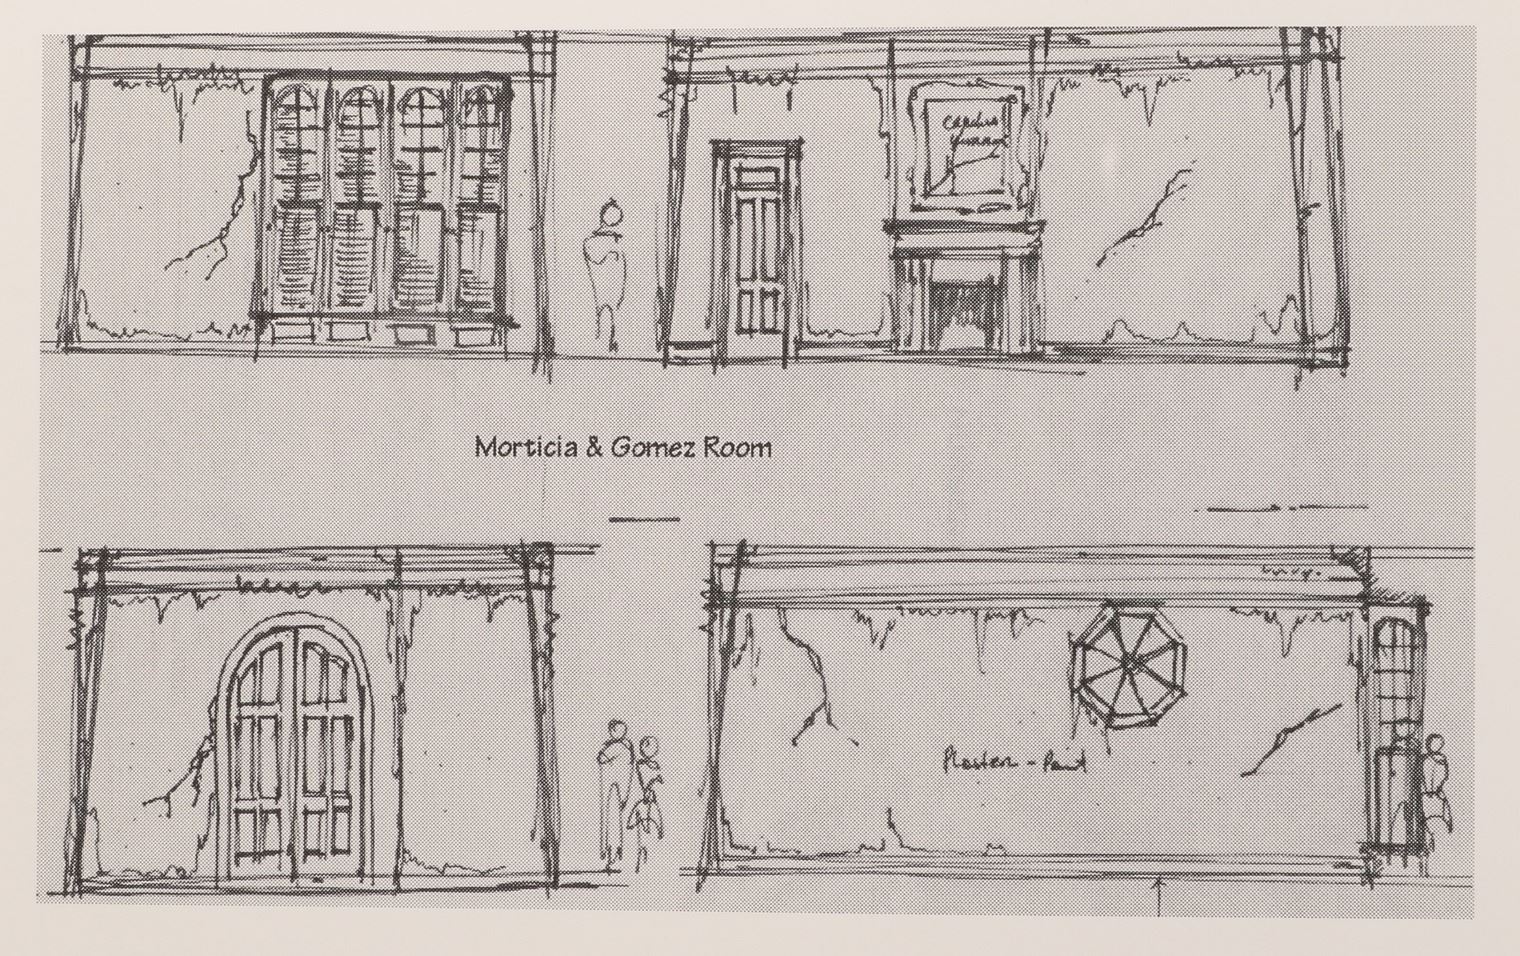 Morticia & Gomez Room
Plaster - Paint